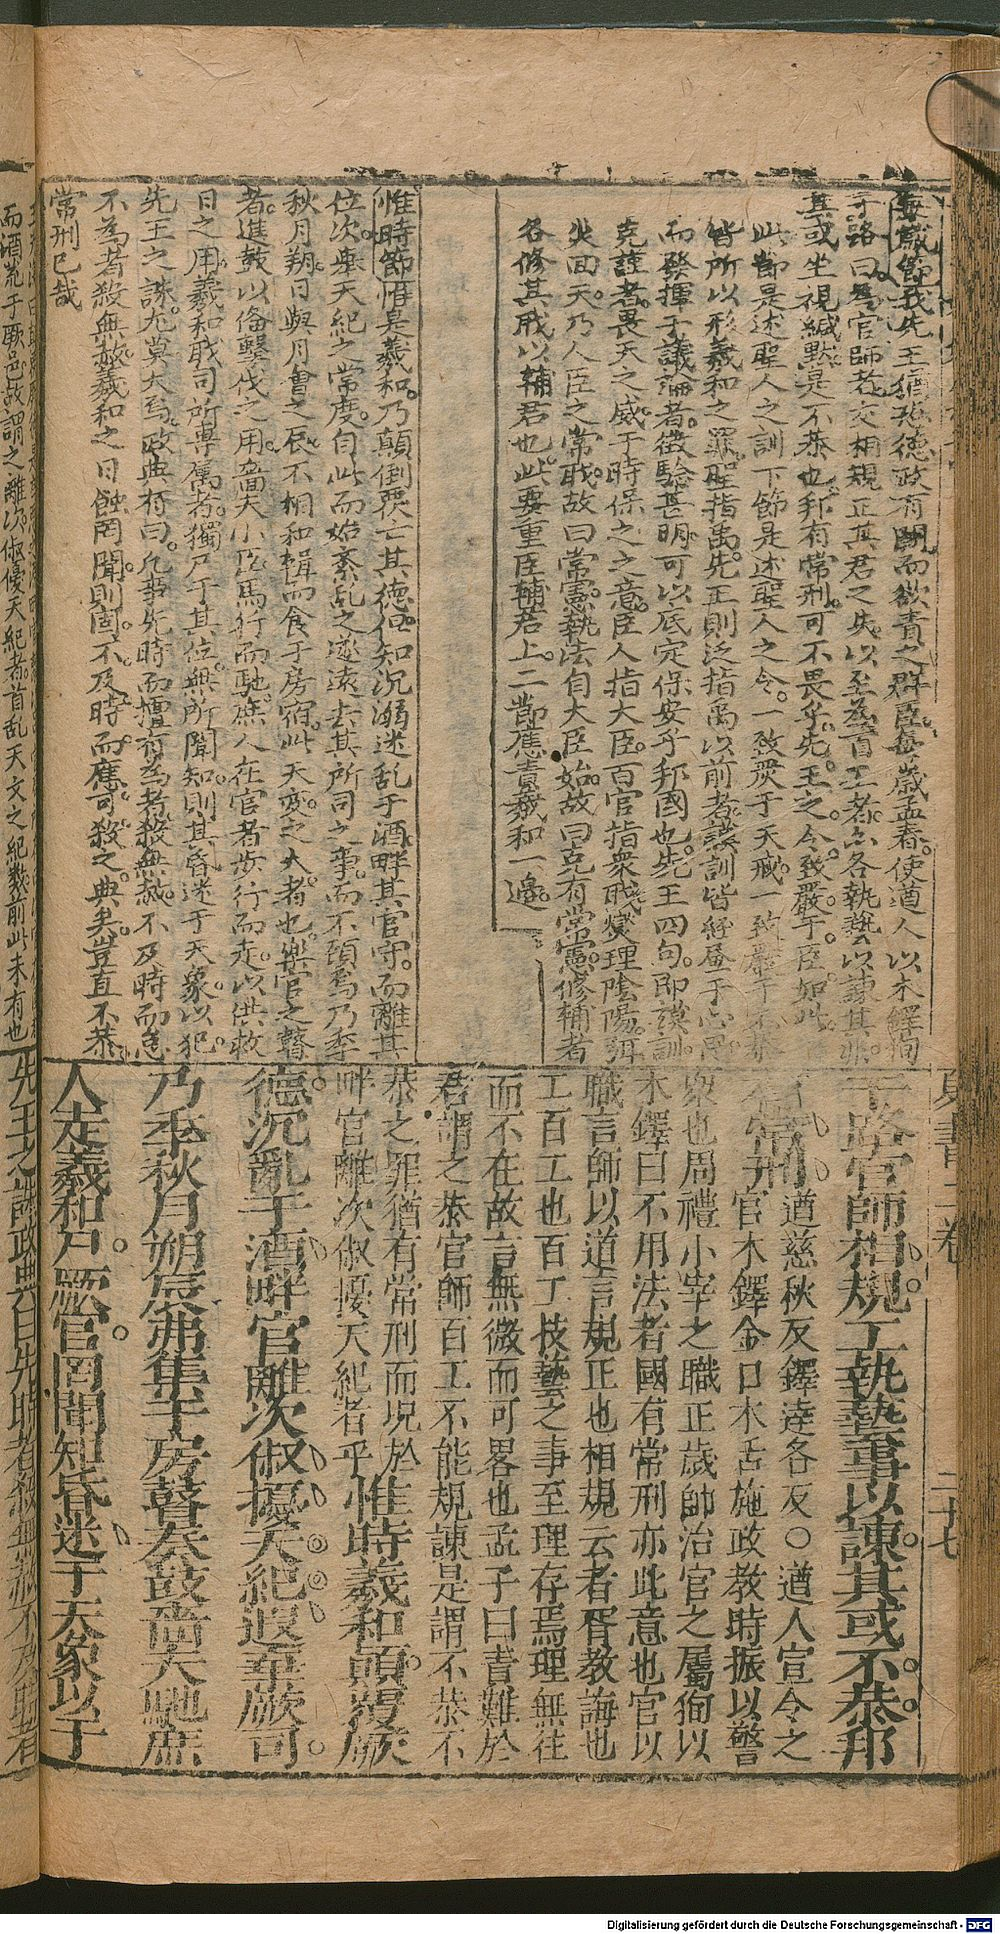 每歲節我先王猶恐德政有闕而欲責之群臣每歲孟春使遒人以木鐸徇
于路曰為官師者交相規正其君之失以至為百工者亦各執藝以諫其非
其或坐視緘默是不恭也邦有常刑可不畏乎先王之令致嚴于臣如此
此節是述聖人之訓下節是述聖人之令一致嚴于天戒一致嚴于不恭
皆所以形羲和之罪聖指禹先正則泛指禹以前者謨訓皆經歷于心思
而發揮于議論者徵驗甚明可以底定保安乎邦國也先王四句即謨訓
克謹者畏天之威于時保之之意臣人指大臣百官指衆職燮理陰陽弭
災回天乃人臣之常職故曰常憲執法自大臣始故曰克有常憲修輔者
各修其職以輔君也此要重臣輔君上二節應責羲和一邊
惟時節惟是羲和乃顛倒覆亡其德但知沉溺迷乱于酒畔其官守而離其
位次舉天紀之常度自此而始紊乱之遂遠去其所司之事而不顧焉乃季
秋月朔日與月會之辰不相和輯而食于房宿此天变之大者也樂官之瞽
者進鼓以俻擊伐之用嗇夫小臣馬行而馳庶人在官者步行而走以供救
日之用羲和職司所專属者獨尸于其位無所聞知則其昏迷于天象以犯
先王之誅尤莫大焉政典有曰凡事先時而擅有為者殺無赦不及時而怠
不為者殺無赦羲和之日蝕罔聞則固不及時而應可殺之典矣豈直不恭
常刑已哉
夏書 二卷 二十七
于路官師相規工執藝事以諫其或不恭邦
有常刑 遒慈秋反鐸達各反○遒人宣令之
官木鐸金口木舌施政教時振以警
衆也周禮小宰之職正歲帥治官之屬徇以
木鐸曰不用法者國有常刑亦此意也官以
職言師以道言規正也相規云者胥教誨也
工百工也百工技藝之事至理存焉理無往
而不在故言無微而可畧也孟子曰責難於
君謂之恭官師百工不能規諫是謂不恭不
恭之罪猶有常刑而况於
畔官離次俶擾天紀者乎 惟時羲和顛覆厥
德沉亂于酒畔官離次俶擾天紀遐棄厥司
乃季秋月朔辰弗集于房瞽奏鼓嗇夫馳庶
人走羲和尸厥官罔聞知昏迷于天象以于
而酒荒于厥邑故謂之離次俶優天紀者首乱天文之紀数前此未有也
先王之誅政典曰先時者殺無赦不及時者
Digitalisierung gefördert durch die Deutsche Forschungsgemeinschaft - DFG